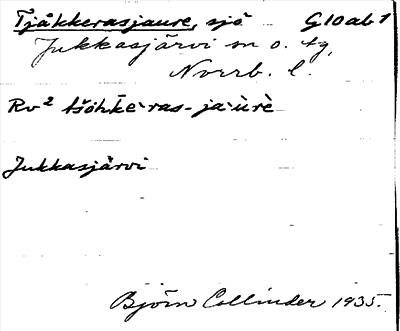 Tjåkkerasjaure, sjö G10ab1
Jukkasjärvi sn o. tg,
Norrb. l.
Rv² tšöhke-ras-ja·ùrè
Jukkasjärvi
Björn Collinder 1935.